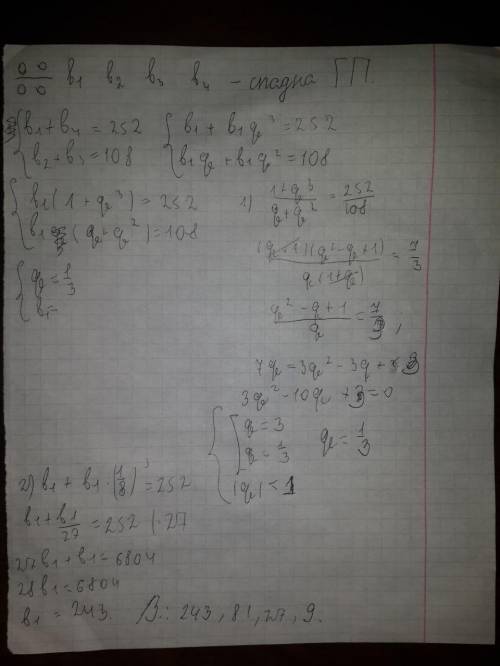 b₁ b₂ b₃ b₄ - спадна ГП.
{ b₁ + b₄ = 252
b₂ + b₃ = 108
{ b₁ + b₁q³ = 252
b₁q + b₁q² = 108
{ b₁(1 + q³) = 252
b₁(q + q²) = 108
1) (1+q³)/(q+q²) = 252/108
{ q = 1/3
b₁ =
(q+1)(q²-q+1)/(q(1+q)) = 7/3
(q² - q + 1)/q = 7/3,
7q = 3q² - 3q + 3
3q² - 10q + 3 = 0
{ [ q = 3
q = 1/3
|q| < 1
q = 1/3
2) b₁ + b₁·(1/3)³ = 252
b₁ + b₁/27 = 252 | · 27
27b₁ + b₁ = 6804
28b₁ = 6804
b₁ = 243.
В.: 243, 81, 27, 9.